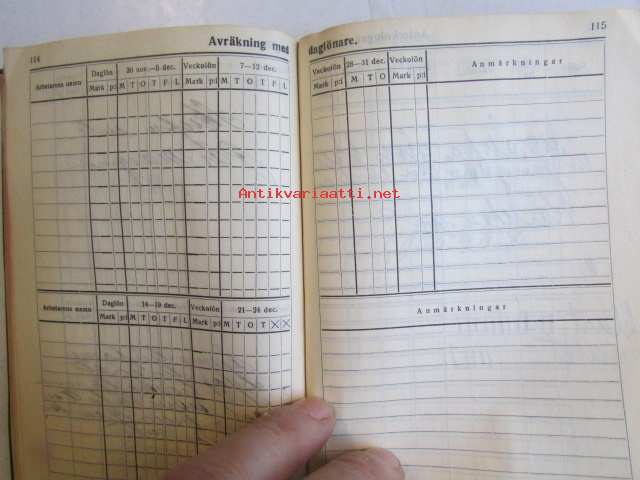 114
Avräkning med daglönare.
115
Arbetarens namn Daglön 30 nov.—5 dec. Veckolön 7—12 dec.
Mark p:i M T O T F L Mark p:i M T O T F L
Veckolön 28—31 dec. Veckolön Anmärkningar
Mark p:i M T O Mark p:i
Antikvariaatti.net
Arbetarens namn Daglön 14—19 dec. Veckolön 21—24 dec.
Mark p:i M T O T F L Mark p:i M T O T X X
Anmärkningar